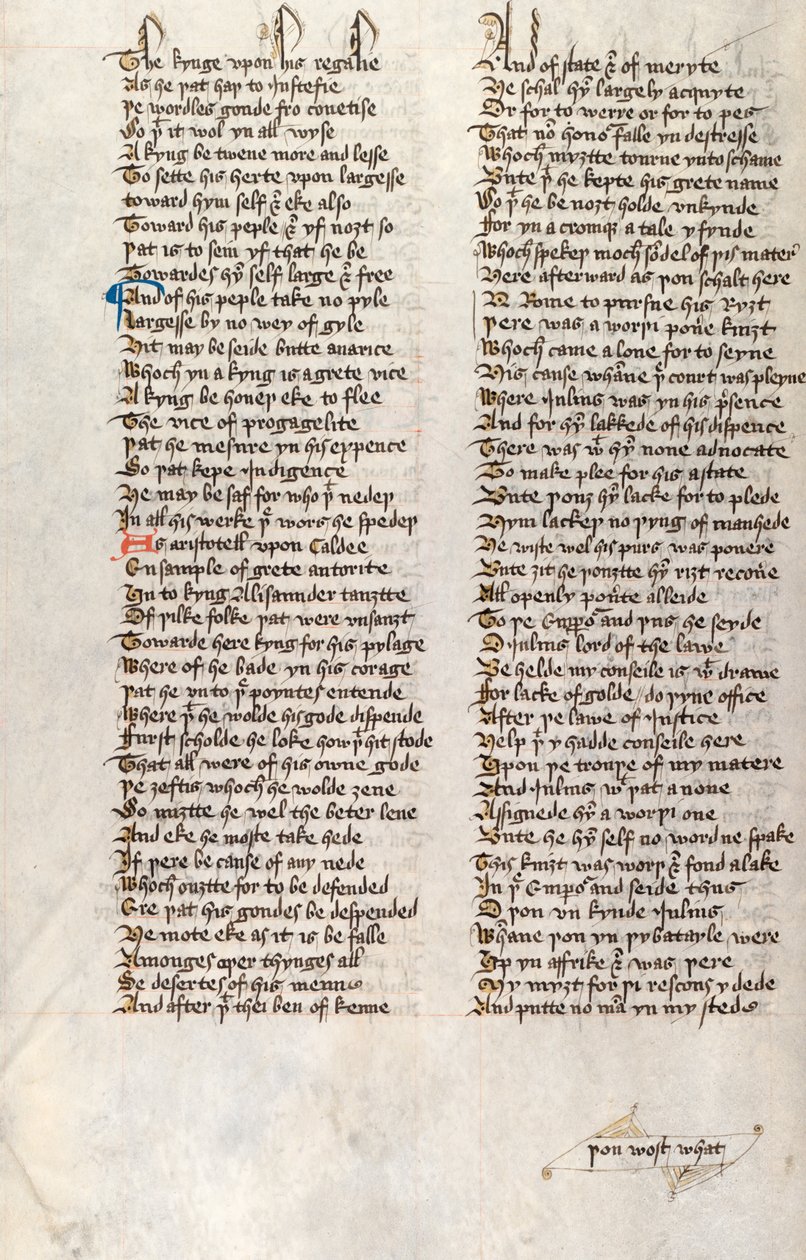 The kynge vpon his regalie
As he þat haþ to Iustefie
Þe wordles goude fro couetise
So þt it wol yn all wyse
A kyng be twene more and lesse
To sette his herte vpon largesse
toward hym self & eke also
Toward his peple & yf nozt so
Þat is to sein yf that he be
Towardes hȳ self large & free
And of his peple take no pyle
Largesse by no wey of gyle
Hit may be seide butte auarice
Whoch yn a kyng is a grete vice
A kyng be houeþ eke to flee
The vice of progagelite
Þat he mesure yn his expence
So þat kepe Indigence
He may be saf for who þt nedeþ
In all his werke þe wors he spedeþ
As aristotell vpon Caldee
Ensample of grete autorite
Un to kyng Alisaunder tauztte
Of þilke folke þat were vnsauzt
Towarde here kyng for his pylage
Where of he bade yn his corage
Þat he vn to þe poyntes entende
Where þt he wolde his gode dispende
Furst scholde he loke how þt hit stode
That all were of his owne gode
Þe zeftis whoch he wolde zeue
So miztte he wel the beter leue
And eke he moste take hede
If þere be cause of any nede
Whoch ouztte for to be defended
Ere þat his goudes be despended
He mote eke as it is be falle
Amonges oþer thynges all
Se desertes of his menn
And after þt thei ben of kenne
And of state & of meryte
He schal hȳ largely acquyte
Or for to werre or for to pes
That nō honoʳ falle yn destresse
Whoch myztte tourne ynto schame
Bute þt he kepte his grete name
So þt he be nozt holde vnkynde
For yn a cronique a tale y fynde
Whoch spekeþ moch sōdel of þis mater
Here afterward as þou schalt here
N Rome to pursue his Ryzt
Þere was a worþi pou̅e knizt
Whoch came a lone for to seyne
His cause whāne þe court was pleyne
Where Iulius was yn his p̄sence
And for hȳ lakkede of his dispence
There was wt hȳ none aduocate
To make plee for his astate
Bute þouz hȳ lacke for to plede
Hym lackeþ no þyng of manhede
He wiste wel his purs was pouere
Bute zit he þouztte hȳ rizt recou̅e
All openly pou̅te alleide
To þe Emꝑoʳ and þus he seyde
O Iulius lord of the lawe
Be helde my conseile is wt drawe
For lacke of golde do þyne office
After þe lawe of Iustice
Help þt y hadde conseile here
Upon þe trouþe of my matere
And Iulius wt þat a none
Assignede hȳ a worþi one
Bute he hȳ self no word ne spake
This knizt was worþ & fond a lake
In þe Emꝑoʳ and seide thus
O þou vn kynde Iulius
Whāne þou yn þy batayle were
Up yn affrike & was þere
My myzt for þi rescous y dede
And putte no mā yn my stede
þou wost what